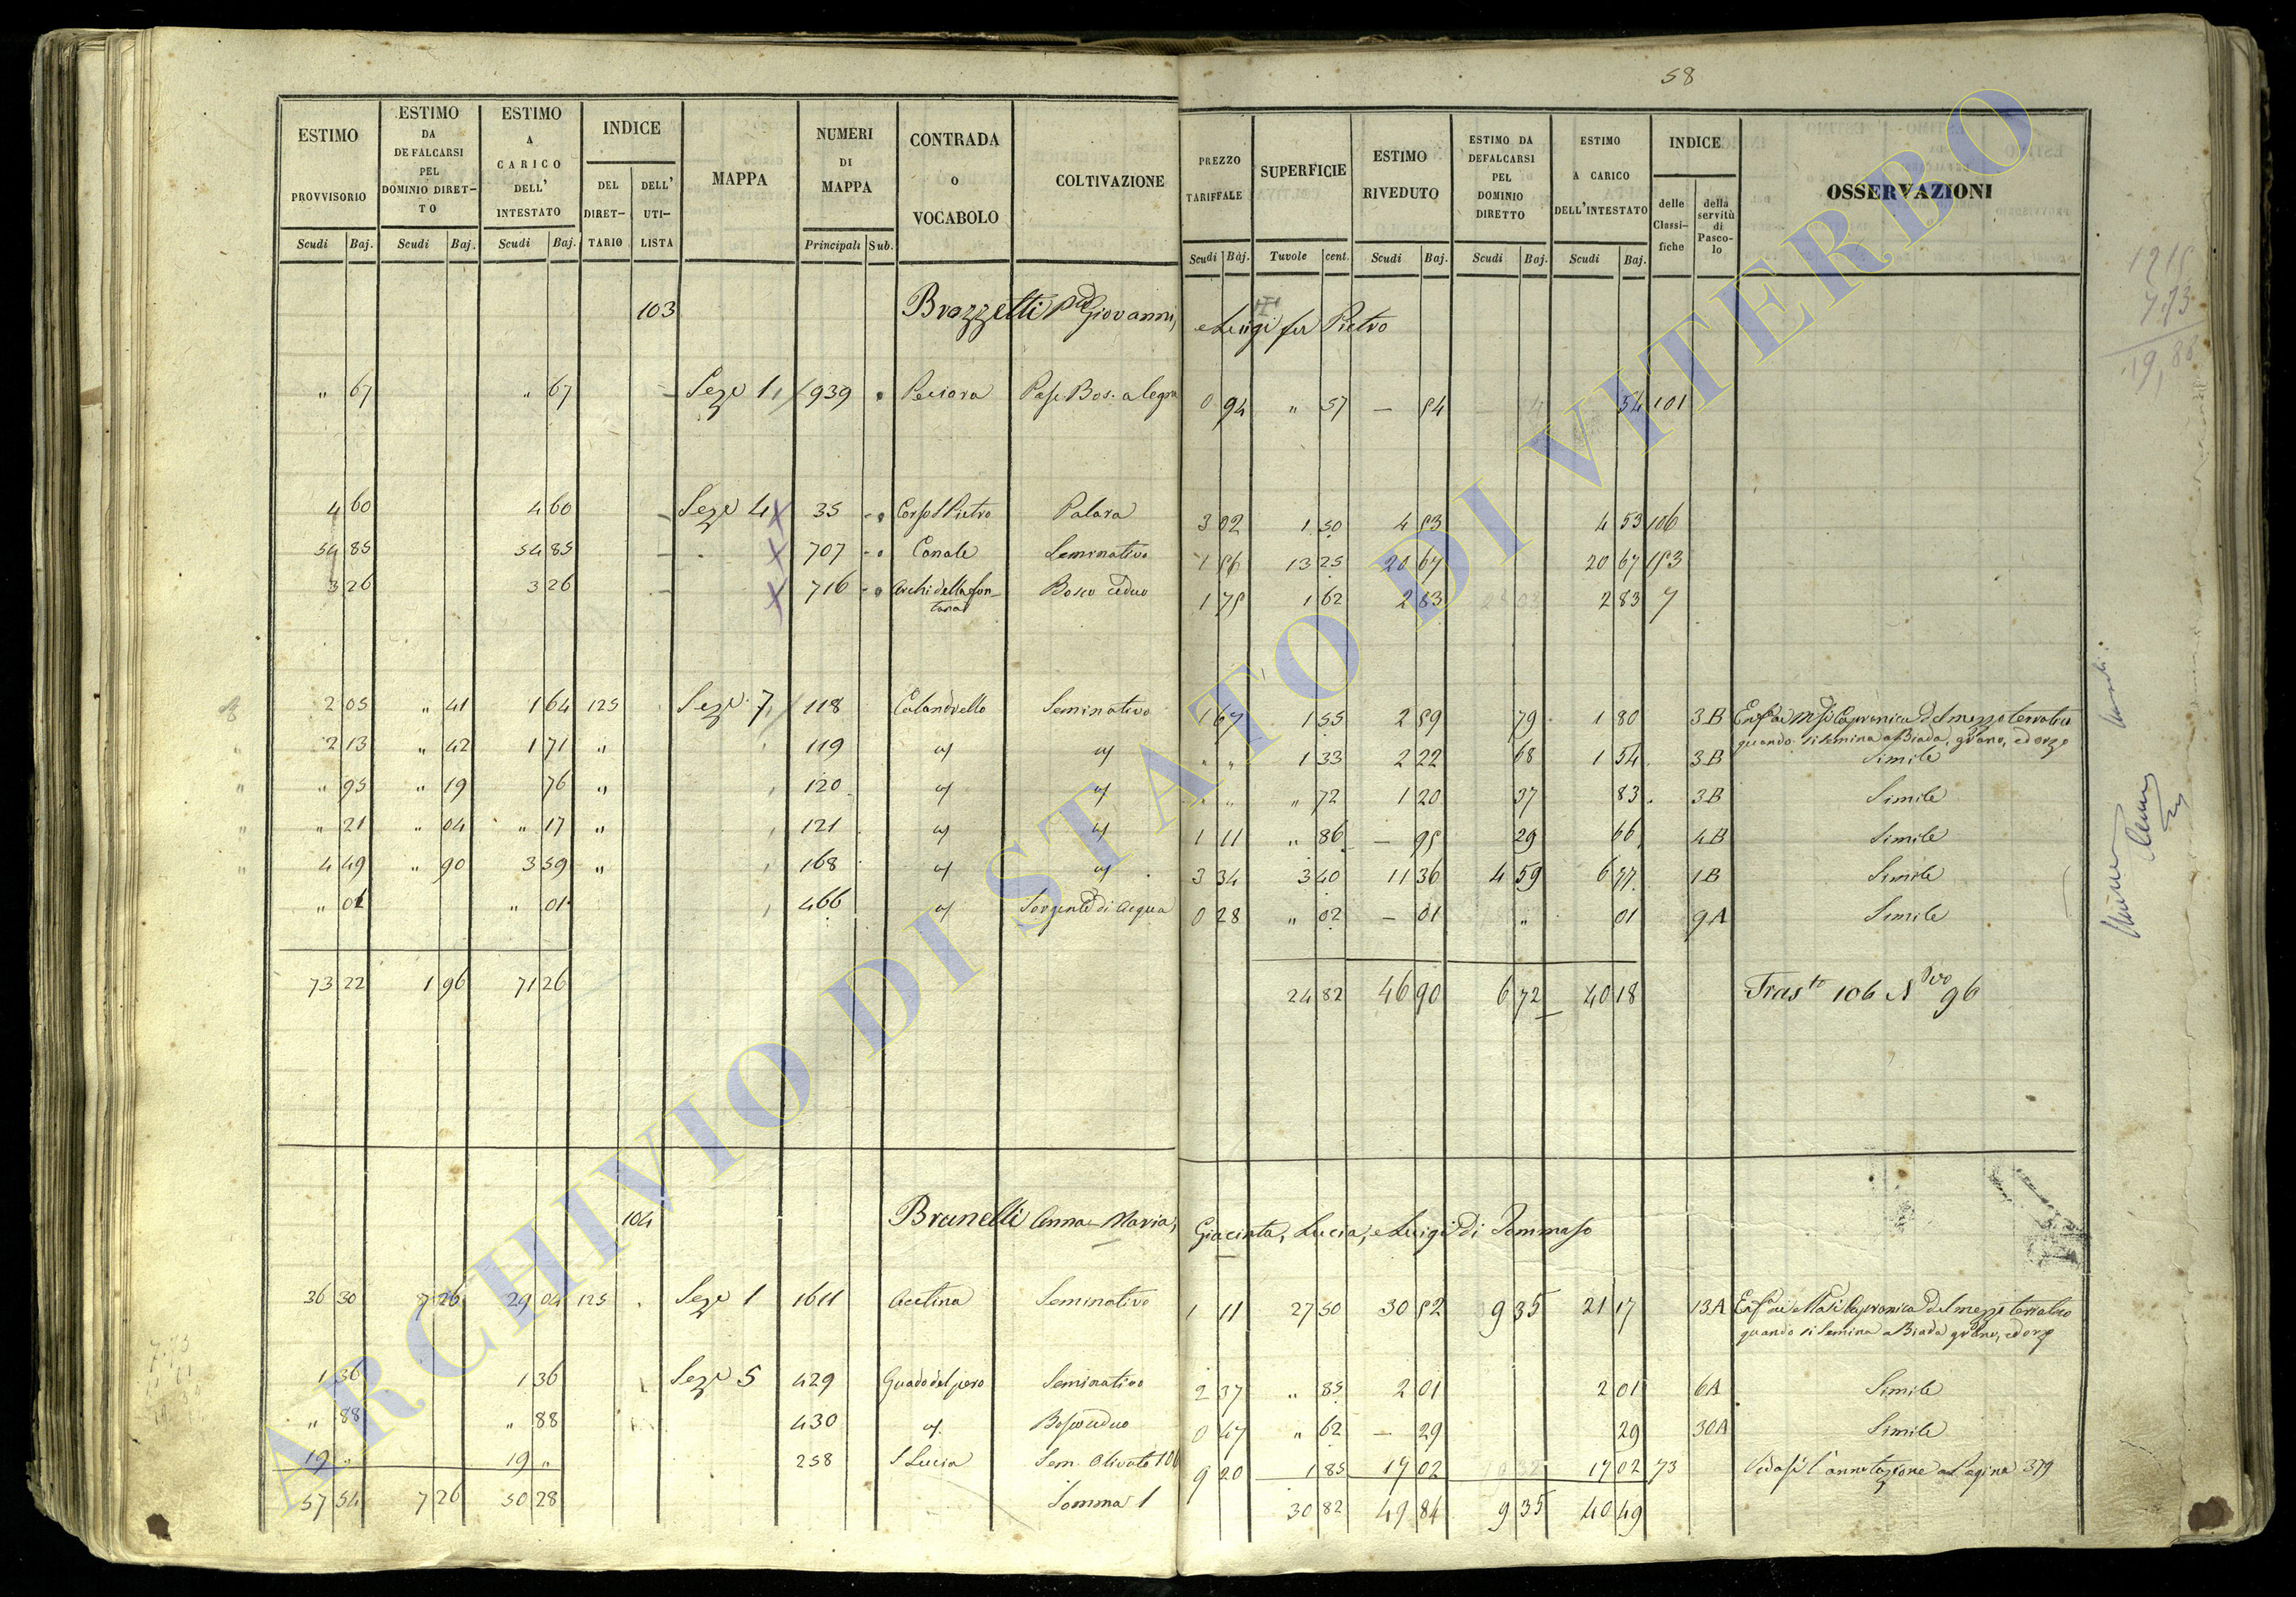 58
ESTIMO PROVVISORIO Scudi Baj. | ESTIMO DA DEFALCARSI PEL DOMINIO DIRETTO Scudi Baj. | ESTIMO A CARICO DELL' INTESTATO Scudi Baj. | INDICE DEL DIRETTARIO DELL' UTILISTA | MAPPA | NUMERI DI MAPPA Principali Sub. | CONTRADA O VOCABOLO | COLTIVAZIONE | PREZZO TARIFFALE Scudi Baj. | SUPERFICIE Tavole cent. | ESTIMO RIVEDUTO Scudi Baj. | ESTIMO DA DEFALCARSI PEL DOMINIO DIRETTO Scudi Baj. | ESTIMO A CARICO DELL'INTESTATO Scudi Baj. | INDICE delle Classifiche della servitù di Pascolo | OSSERVAZIONI
103 Brazzetti Giovanni, e Luigi fu Pietro
" 67 " 67 Seze 1 939 Peciara Pas. Bos. a legna 0 94 " 57 — 54 54 101
4 60 4 60 Seze 4 35 Corso S Pietro Palara 3 02 1 50 4 53 4 53 106
54 85 54 85 707 Canale Seminativo 1 56 13 25 20 67 20 67 153
3 26 3 26 716 Archi della fontana Bosco ceduo 1 75 1 62 2 83 2 83 7
2 05 " 41 1 64 125 Seze 7 118 Calandrello Seminativo 1 67 1 55 2 59 79 1 80 3B
quando si semina a Biada, grano, ed orzo
2 13 " 42 1 71 " 119 1 33 2 22 68 1 54 3B Simile
" 95 " 19 76 " 120 " 72 1 20 37 83 3B Simile
" 21 " 04 " 17 " 121 1 11 " 86 — 95 29 66 4B Simile
4 49 " 90 3 59 " 168 3 34 3 40 11 36 4 59 6 77 1B Simile
" 01 " 01 466 Sorgente di Acqua 0 28 " 02 — 01 " 01 9A Simile
73 22 1 96 71 26 24 82 46 90 6 72 40 18 Trasto 106 N 96
104 Brunelli Anna-Maria, Giacinta, Lucia, e Luigi di Tommaso
36 30 7 26 29 04 125 Seze 1 1611 Acetina Seminativo 1 11 27 50 30 52 9 35 21 17 13A
quando si semina a Biada grano, ed orzo
1 36 1 36 Seze 5 429 Guado del pero Seminativo 2 37 " 85 2 01 2 01 6A Simile
" 88 " 88 430 Bosco ceduo 0 47 " 62 — 29 29 30A Simile
19 " 19 " 258 S Lucia Sem. Olivato 9 20 1 85 17 02 17 02 73 Vedasi l'annotazione a Pagina 379
57 54 7 26 50 28 Somma 30 82 49 84 9 35 40 49
ARCHIVIO DI STATO DI VITERBO